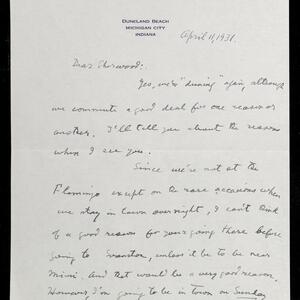 DUNELAND BEACH
MICHIGAN CITY
INDIANA
April 11, 1931
Dear Sherwood:
Yes, we're "duning" again, although
we commute a good deal for one reason or
another. I'll tell you about the reasons
when I see you.
Since we're not at the
Flamingo except on the rare occasions when
we stay in town overnight, I can't think
of a good reason for your going there before
going to Evanston, unless it be to be near
Mimi. And that would be a very good reason.
However, I'm going to be in town on Sunday